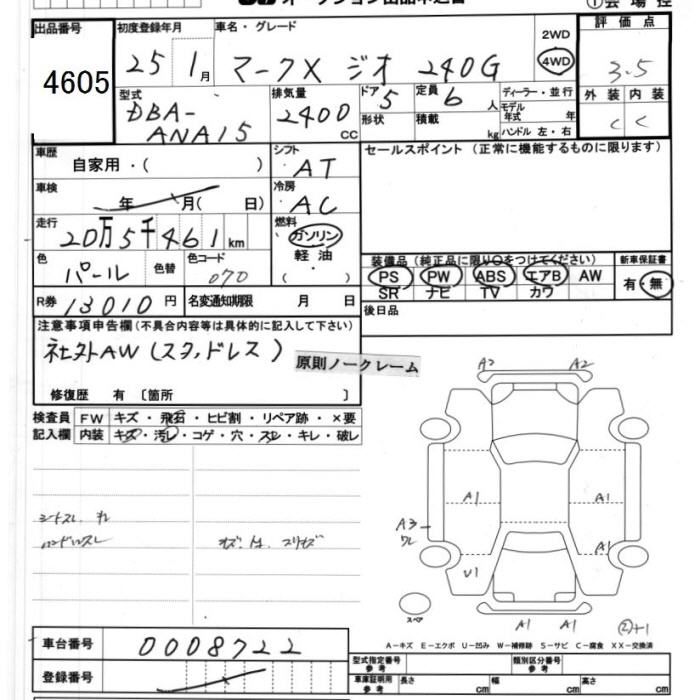 出品番号
4605
初度登録年月
25 1月
車名・グレード
マークX ジオ 240G
2WD
4WD
①会場控
評価点
3.5
外装 内装
C C
型式
DBA-
ANA15
排気量
2400
CC
ドア 5
形状
定員 6 人
積載 kg
ディーラー・並行
モデル
年式 年
ハンドル 左・右
車歴
自家用・( )
シフト
AT
セールスポイント (正常に機能するものに限ります)
車検
年 月( 日)
冷房
AC
走行
20万5千461km
燃料
ガソリン
軽油
( ・ )
色
パール
色替
色コード
070
装備品 (純正品に限り○をつけてください)
PS PW ABS エアB AW
SR ナビ TV カワ
新車保証書
有・無
R券 13010円
名変通知期限 月 日
後日品
注意事項申告欄(不具合内容等は具体的に記入して下さい)
社外AW(スタッドレス)
原則ノークレーム
修復歴 有 〔箇所 〕
検査員
記入欄
FW キズ・飛石・ヒビ割・リペア跡・×要
内装 キズ・汚レ・コゲ・穴・スレ・キレ・破レ
シートスレ
ハンドルスレ
A2 A2
A1 A1
A3
ワレ
A1
U1
スペア
A1 A1
A-キズ E-エクボ U-凹み W-補修跡 S-サビ C-腐食 XX-交換済
車台番号
0008722
登録番号
型式指定番号
参考
類別区分番号
参考
車庫証明用
参考
長さ cm 幅 cm 高さ cm